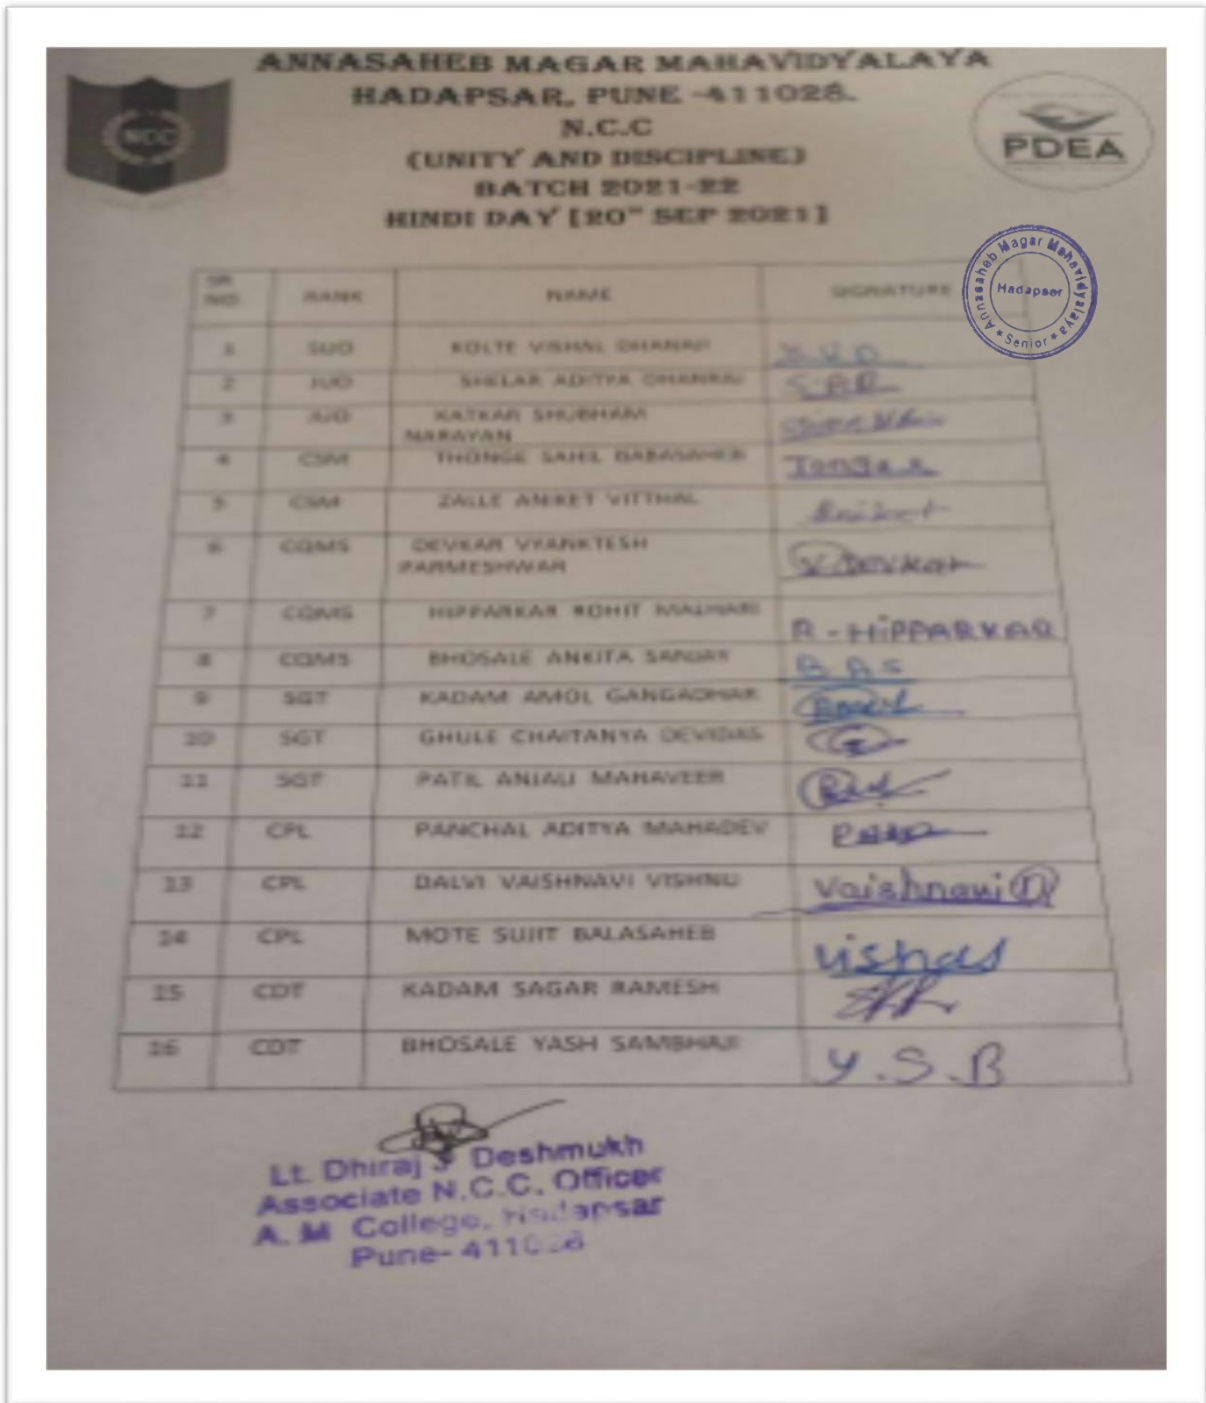 ANNASAHEB MAGAR MAHAVIDYALAYA
HADAPSAR, PUNE -411028.
N.C.C
(UNITY AND DISCIPLINE)
BATCH 2021-22
HINDI DAY [20TH SEP 2021]
NCC
PDEA
Annasaheb Magar Mahavidyalaya
Hadapser
* Senior *
SR NO. RANK NAME SIGNATURE
1 SUO KOLTE VISHAL DHANAJI
2 JUO SHELAR ADITYA DHANRAJ S.A.D
3 JUO KATKAR SHUBHAM
NARAYAN
4 CSM THONGE SAHIL BABASAHEB
5 CSM ZALLE ANIKET VITTHAL Aniket
6 CQMS DEVKAR VYANKTESH V. Devkar
PARMESHWAR
7 CQMS HIPPARKAR ROHIT MALHARI R - HiPPARKAR
8 CQMS BHOSALE ANKITA SANJAY B.A.S
9 SGT KADAM AMOL GANGADHAR
10 SGT GHULE CHAITANYA DEVIDAS
11 SGT PATIL ANJALI MAHAVEER
12 CPL PANCHAL ADITYA MAHADEV
13 CPL DALVI VAISHNAVI VISHNU Vaishnavi D
14 CPL MOTE SUJIT BALASAHEB
15 CDT KADAM SAGAR RAMESH
16 CDT BHOSALE YASH SAMBHAJI Y.S.B
Lt. Dhiraj J Deshmukh
Associate N.C.C. Officer
A. M College, Hadapsar
Pune- 411028